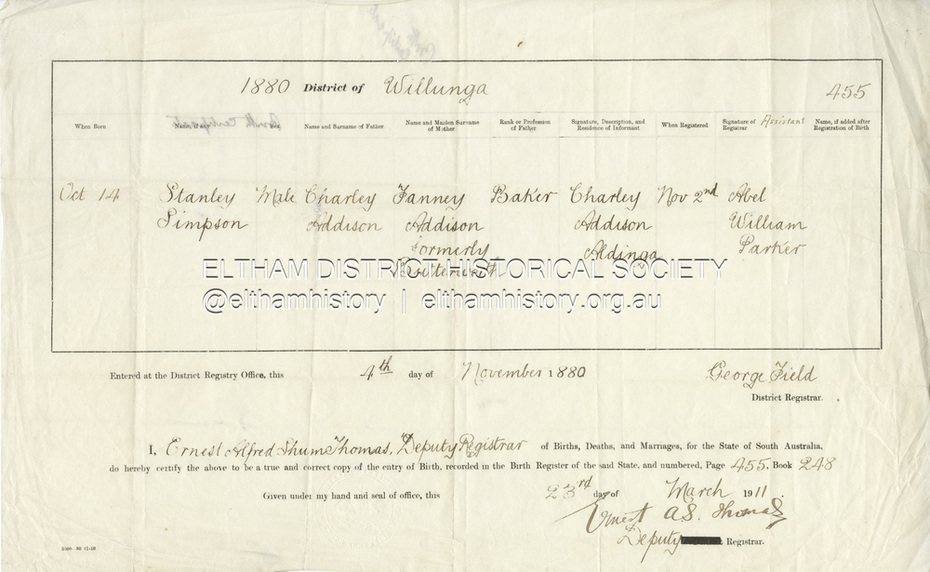 1880 District of Willunga
455
When Born
Name and Surname of Father
Name and Maiden Surname of Mother
Rank or Profession of Father
Signature, Description, and Residence of Informant
When Registered
Signature of Assistant Registrar
Name, if added after Registration of Birth
Oct 14 Stanley Male Charley Fanney Baker Charley Nov 2nd Abel
Simpson Addison Addison Addison William
formerly Aldinga Parker
ELTHAM DISTRICT HISTORICAL SOCIETY
@elthamhistory | elthamhistory.org.au
Entered at the District Registry Office, this 4th day of November 1880 George Field
District Registrar.
I, Ernest Alfred Shum Thomas, Deputy Registrar of Births, Deaths, and Marriages, for the State of South Australia,
do hereby certify the above to be a true and correct copy of the entry of Birth, recorded in the Birth Register of the said State, and numbered, Page 455. Book 248
Given under my hand and seal of office, this 23rd day of March 1911.
Ernest A.S. Thomas
Deputy Registrar.